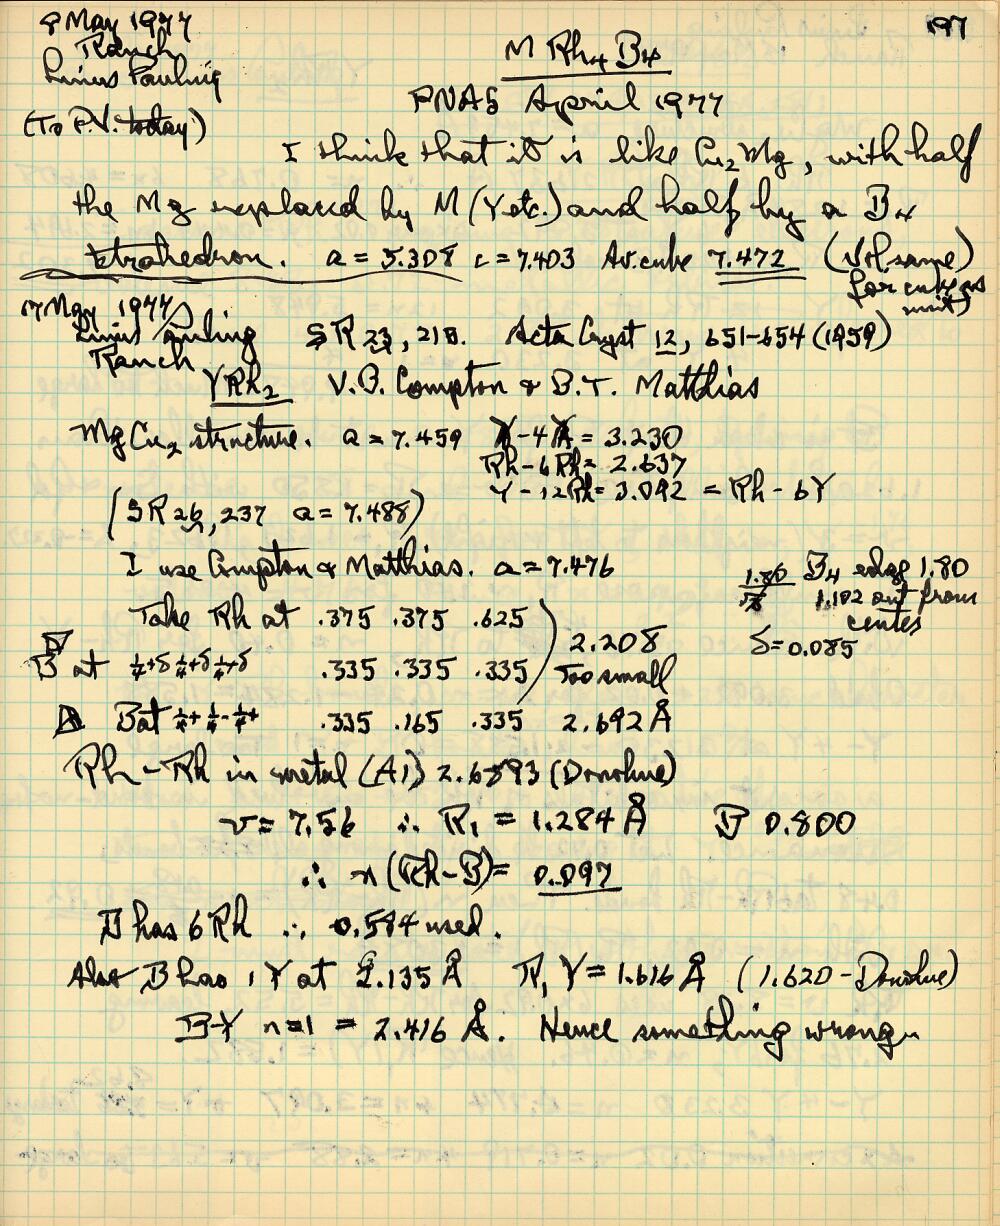 197
8 May 1977
Ranch
Linus Pauling
(To P.V. today)
M Rh4 B4
PNAS April 1977
I think that it is like Cu2Mg, with half
the Mg replaced by M (Y etc.) and half by a B4
tetrahedron. a = 5.308 c = 7.403 Av. cube 7.472 (Vol. same)
for cube as
unit)
17 May 1977
Linus Pauling
Ranch
SR 23, 218. Acta Cryst 12, 651-654 (1959)
YRh2 V.B. Compton & B.T. Matthias
MgCu2 structure. a = 7.459 Y-4Y = 3.230
Rh-6Rh = 2.637
Y-12Rh = 3.092 = Rh-6Y
(SR 26, 237 a = 7.488)
I use Compton & Matthias. a = 7.476
1.80/√ B4 edge 1.80
1.102 out from
center
δ = 0.085
Take Rh at .375 .375 .625
B at 1/4+δ 1/4+δ 1/4+δ .335 .335 .335 2.208
Too small
B at 1/4+ 1/4- 1/4+ .335 .165 .335 2.692 Å
Rh-Rh in metal (A1) 2.6893 (Donohue)
v = 7.56 ∴ R1 = 1.284 Å B 0.800
∴ n (Rh-B) = 0.097
B has 6 Rh ∴ 0.584 used.
Also B has 1 Y at 2.135 Å R1 Y = 1.616 Å (1.620-Donohue)
B-Y n=1 = 2.416 Å. Hence something wrong.